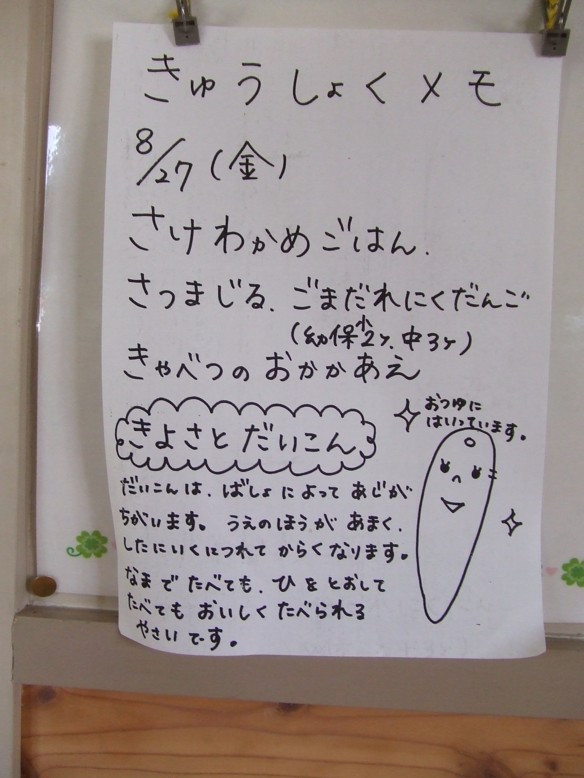 きゅうしょくメモ
8/27(金)
さけわかめごはん.
さつまじる、ごまだれにくだんご
(幼保小2ヶ、中3ヶ)
きゃべつのおかかあえ
きよさとだいこん
おつゆに
はいっています。
だいこんは、ばしょによってあじが
ちがいます。うえのほうがあまく、
したにいくにつれてからくなります。
なまでたべても、ひをとおして
たべてもおいしくたべられる
やさいです。